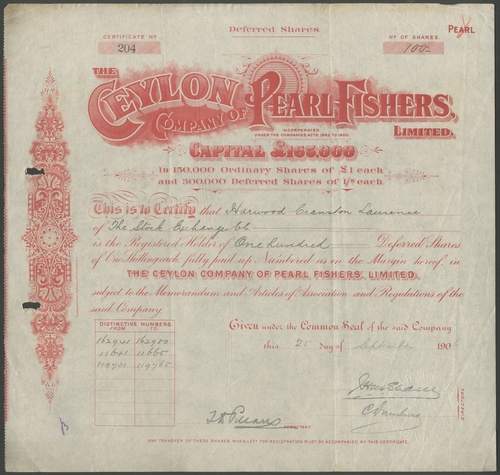 Deferred Shares.
PEARL
CERTIFICATE No
204
No OF SHARES.
100
THE
CEYLON
COMPANY OF PEARL FISHERS,
LIMITED.
INCORPORATED
UNDER THE COMPANIES ACTS 1862 TO 1900.
CAPITAL £165,000
In 150,000 Ordinary Shares of £1 each
and 300,000 Deferred Shares of 1/- each.
This is to Certify that Harwood Cranston Laurence
of The Stock Exchange
is the Registered Holder of One hundred Deferred Shares
of One Shilling each fully paid up Numbered as in the Margin hereof, in
THE CEYLON COMPANY OF PEARL FISHERS, LIMITED,
subject to the Memorandum and Articles of Association and Regulations of the
said Company.
DISTINCTIVE NUMBERS
FROM TO
Given under the Common Seal of the said Company
this 25 day of September 190
DIRECTORS.
SECRETARY
ANY TRANSFER OF THESE SHARES WHEN LEFT FOR REGISTRATION MUST BE ACCOMPANIED BY THIS CERTIFICATE.